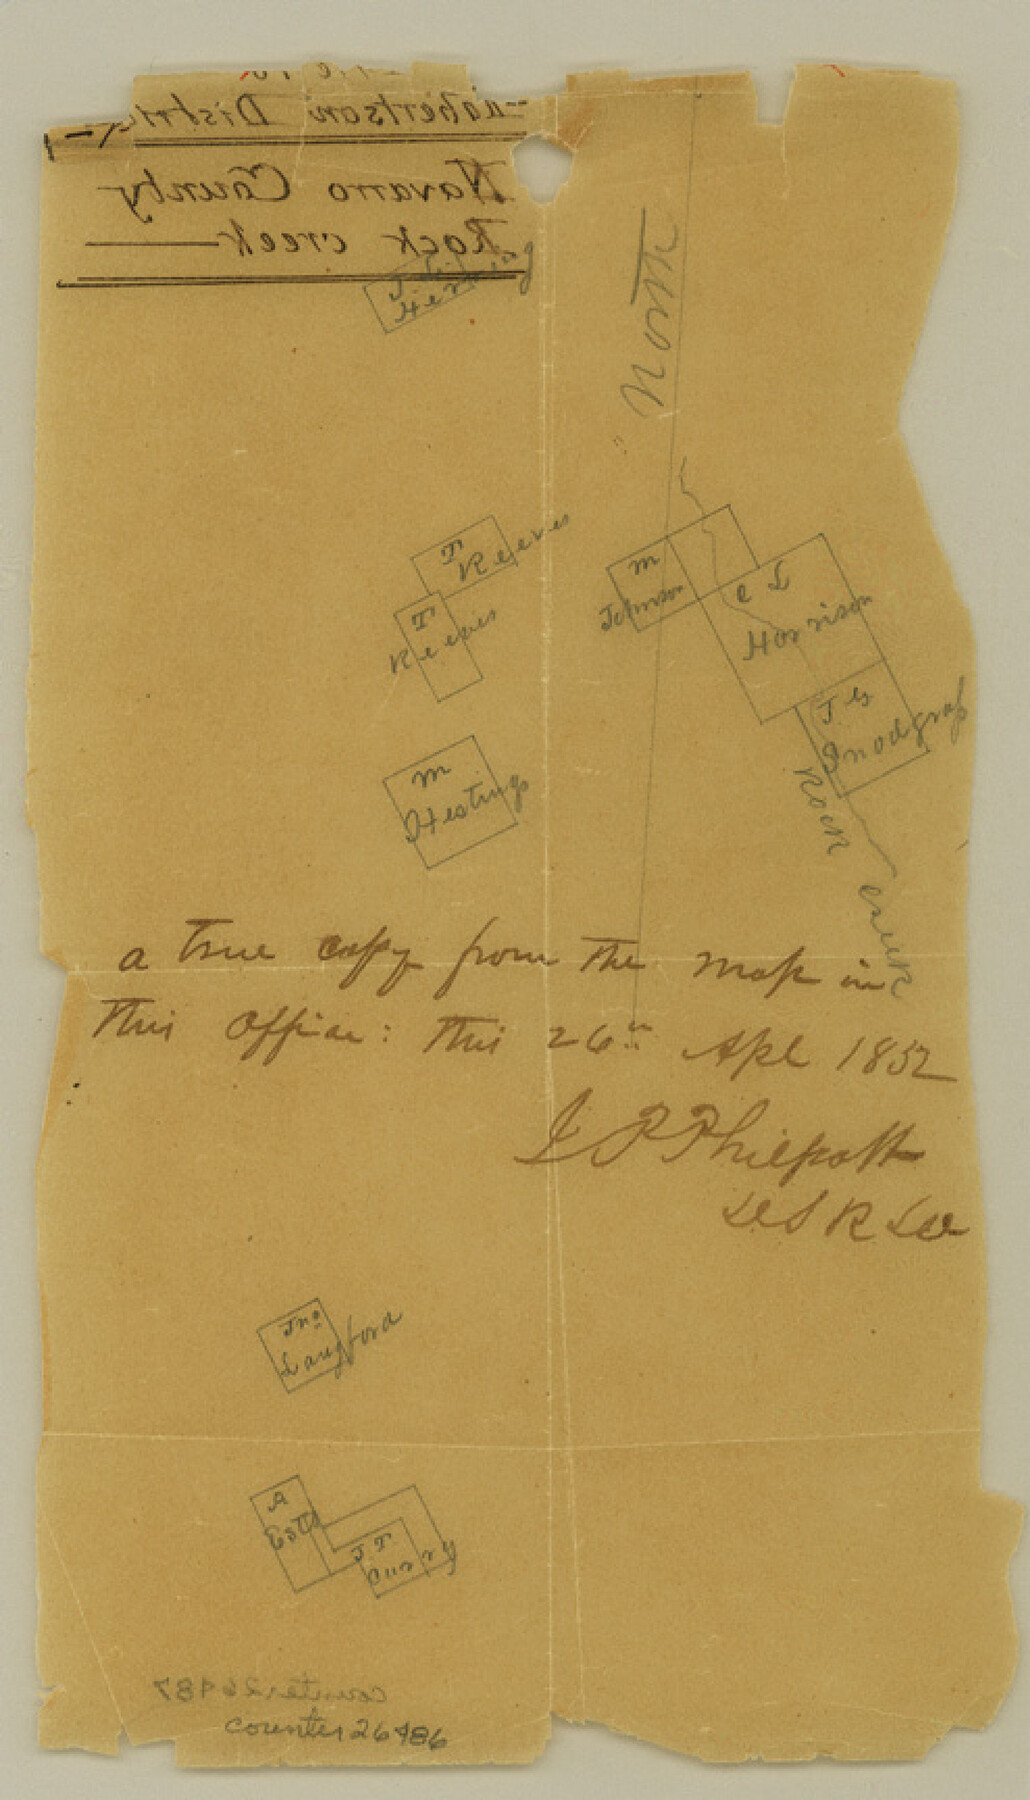 Robertson District
Navarro County
Rock creek
North
T
Reeves
T
Reeves
M
Johnson
C L
Morrison
J G
Snodgrass
M
Hestings
Rock creek
a true copy from the map in
this office: this 26th Apl 1852
J P Philpott
Jno
Langford
A
J T
Curry
counter 26487
counter 26486